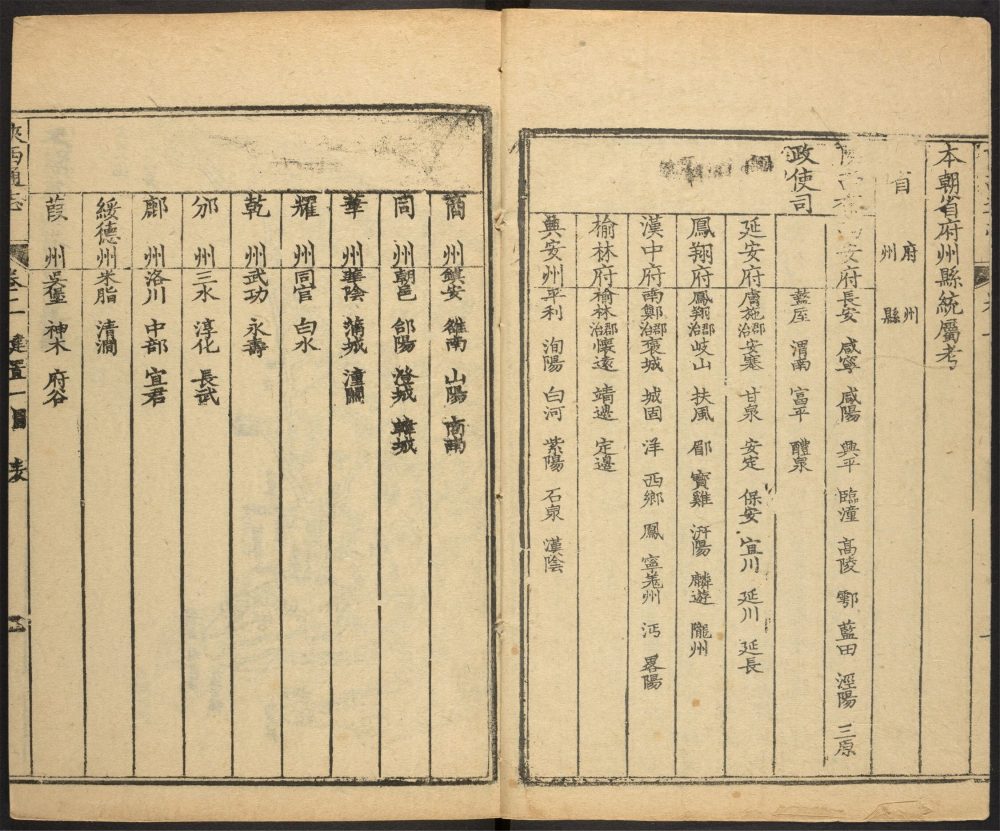 本朝省府州縣統屬考
省 府州 州縣
西安府 長安 咸寧 咸陽 興平 臨潼 高陵 鄠 藍田 涇陽 三原
政使司 盩厔 渭南 富平 醴泉
延安府 膚施郡治 安塞 甘泉 安定 保安 宜川 延川 延長
鳳翔府 鳳翔郡治 岐山 扶風 郿 寶雞 汧陽 麟遊 隴州
漢中府 南鄭郡治 褒城 城固 洋 西鄉 鳳 寧羗州 沔 畧陽
榆林府 榆林郡治 懷遠 靖邊 定邊
興安州 平利 洵陽 白河 紫陽 石泉 漢陰
商州 鎮安 雒南 山陽 商南
同州 朝邑 郃陽 澄城 韓城
華州 華陰 蒲城 潼關
耀州 同官 白水
乾州 武功 永壽
邠州 三水 淳化 長武
鄜州 洛川 中部 宜君
綏德州 米脂 清澗
葭州 吳堡 神木 府谷
陜西通志 卷二 建置一 表